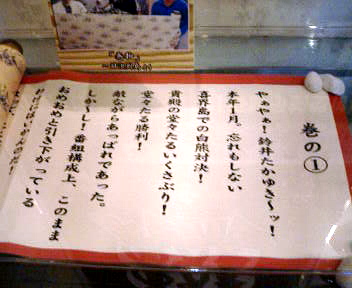 巻の①
やぁやぁ！鈴井たかゆき〜ッ！
本年1月。忘れもしない
喜界島での白熊対決！
貴殿の堂々たるいくさぶり！
堂々たる勝利！
敵ながらあっぱれであった。
しかし！番組構成上、このまま
おめおめと引き下がっている